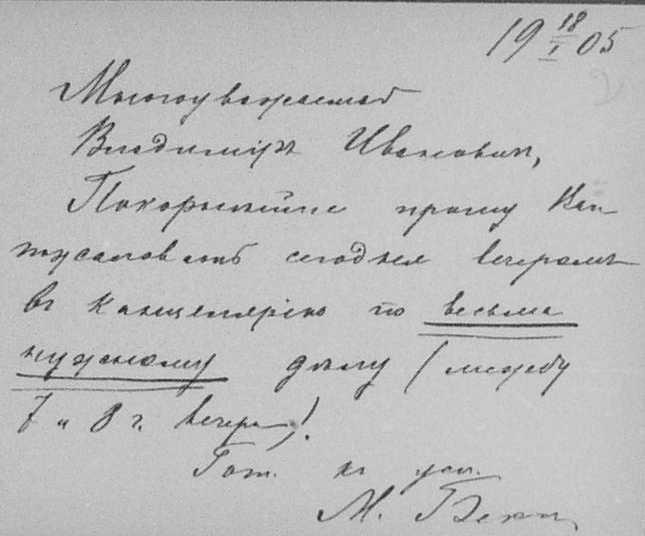 19 18/I 05
Многоуважаемый
Владимiръ Ивановичъ,
Покорнѣйше прошу Вас по-
жаловать сегодня вечеромъ
въ канцелярiю по весьма
нужному дѣлу (между
7 и 8 ч. вечера)!
Гот. къ усл.
М.